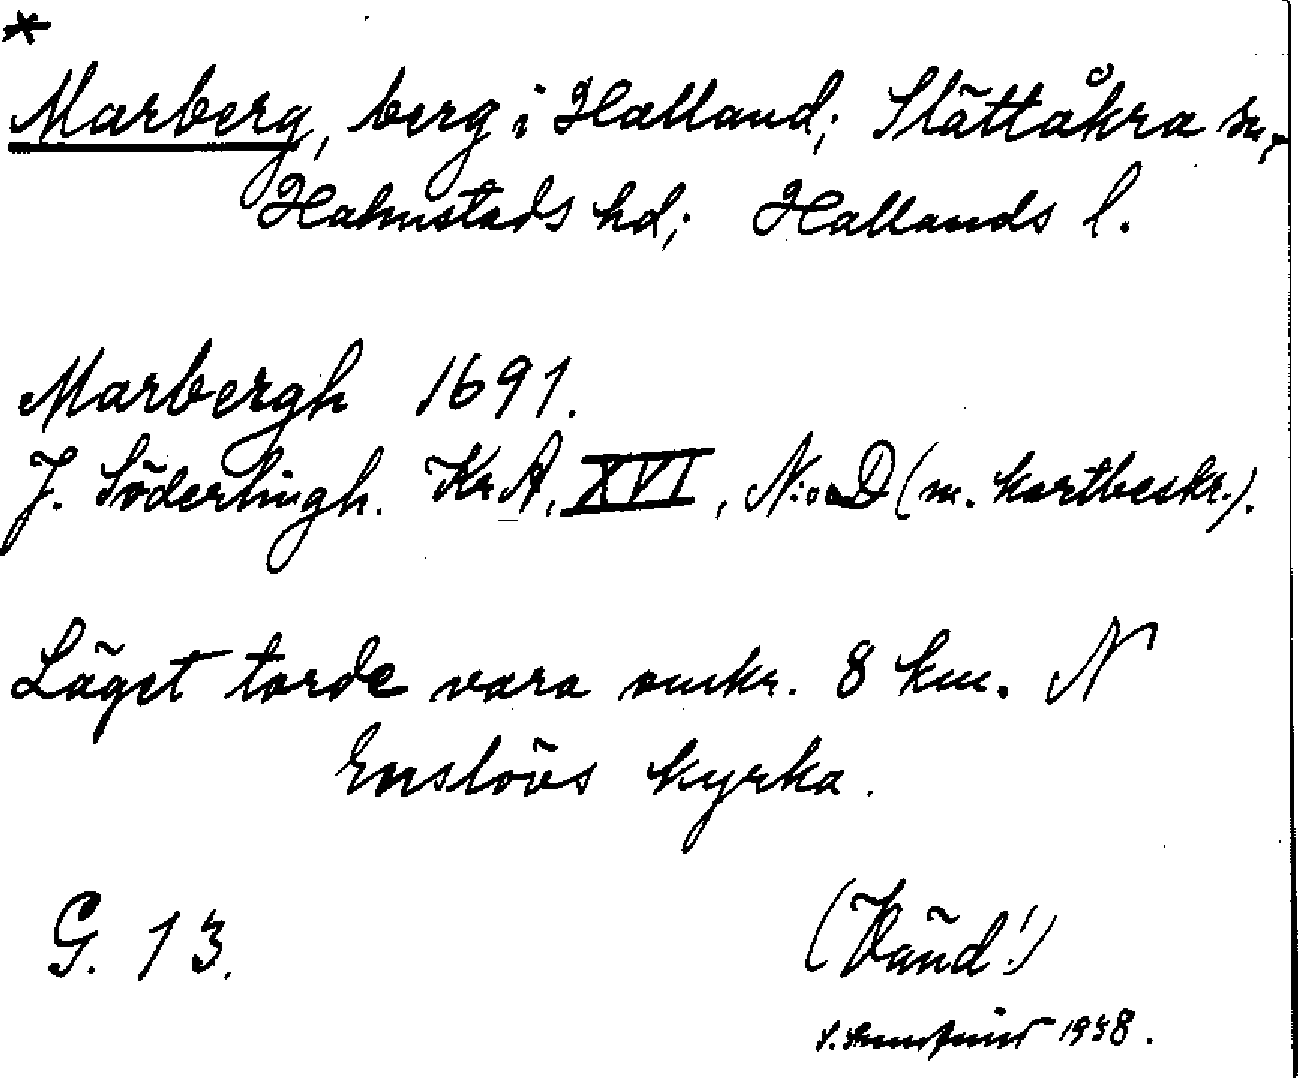 *
Marberg, berg i Halland; Slättåkra sn,
Halmstads hd; Hallands l.
Marbergh 1691.
J. Söderlingh. Kr A. XVI, N:o D (m. kartbeskr.).
Läget torde vara omkr. 8 km. N
Enslövs kyrka.
G. 13.
(Vänd!)
1938.